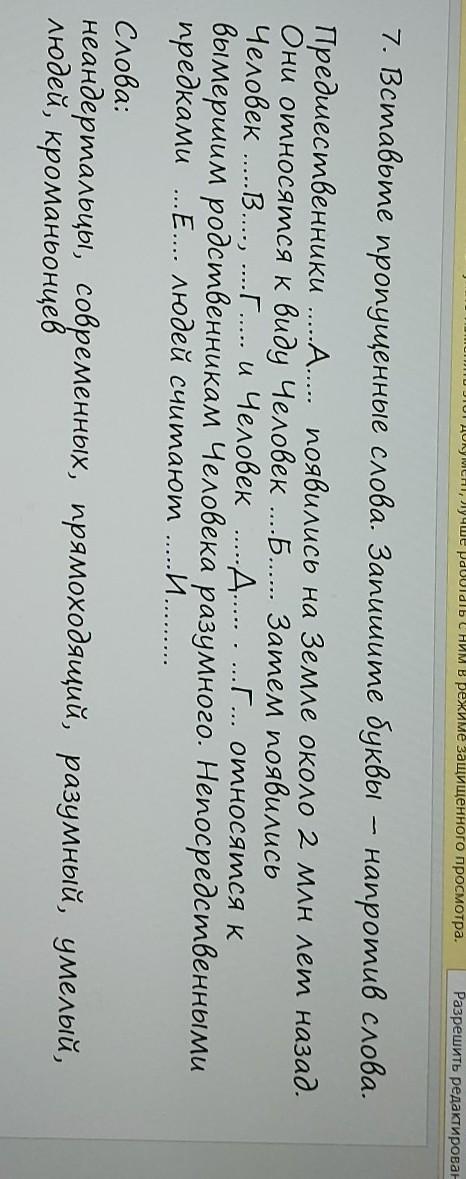 документ, лучше работать с ним в режиме защищенного просмотра.
Разрешить редактирован
7. Вставьте пропущенные слова. Запишите буквы – напротив слова.
Предшественники .....А..... появились на Земле около 2 млн лет назад.
Они относятся к виду Человек ....Б...... Затем появились
Человек .....В...., ....Г ..... и Человек .....Д..... . ....Г ... относятся к
вымершим родственникам Человека разумного. Непосредственными
предками ...Е.... людей считают .....И..........
Слова:
неандертальцы, современных, прямоходящий, разумный, умелый,
людей, кроманьонцев